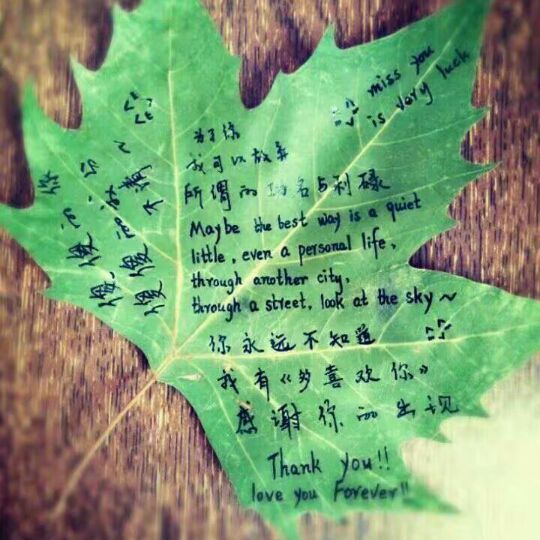 miss you
is very luck
为了你
我可以放弃
所谓的功名与利碌
Maybe the best way is a quiet
little, even a personal life,
through another city,
through a street, look at the sky~
你永远不知道
我有《多喜欢你》
感谢你的出现
Thank you!!
love you Forever!!
慢慢
慢慢
不满